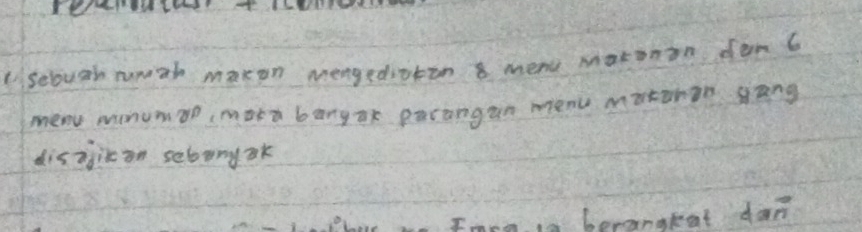 1. sebuah rumah makan mengediakan 8 menu makanan dan 6
menu minuman, maka banyak pasangan menu makanan yang
disajikan sebanyak
berangkat dan